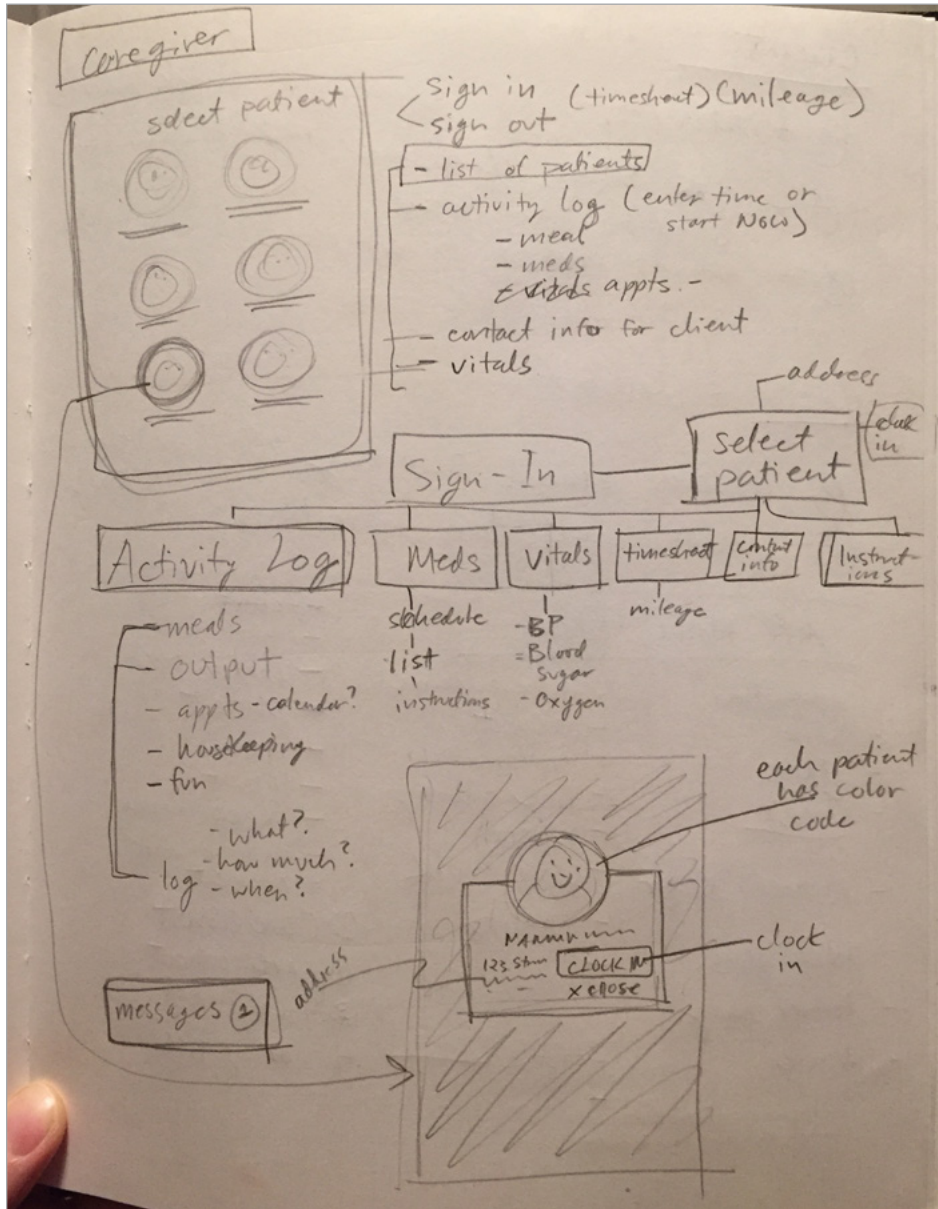 Caregiver
select patient
sign in (timesheet) (mileage)
sign out
- list of patients
- activity log (enter time or
start NOW)
- meal
- meds
- vitals appts. -
- contact info for client
- vitals
address
clock
in
Sign-In
select
patient
Activity Log
Meds
Vitals
timesheet
contact
info
Instruct-
ions
- meals
- output
- appts - calendar?
- housekeeping
- fun
- what?
- how much?
log - when?
schedule
list
instructions
- BP
- Blood
sugar
- Oxygen
mileage
each patient
has color
code
123
CLOCK IN
x close
clock
in
address
messages